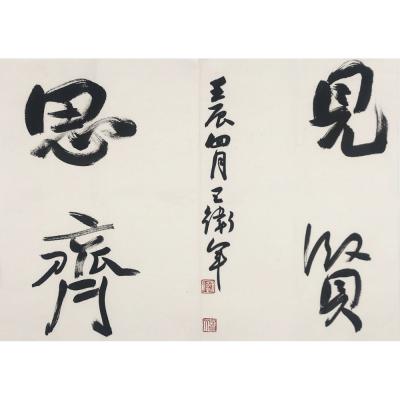 見賢
思齊
壬辰四月王衛军